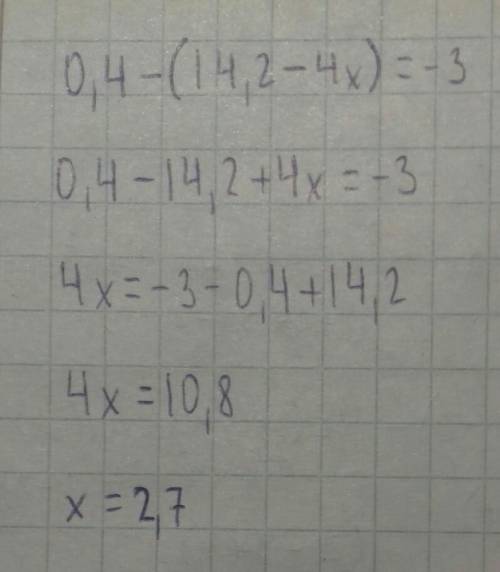 0,4-(14,2-4x)=-3
0,4-14,2+4x=-3
4x=-3-0,4+14,2
4x=10,8
x=2,7